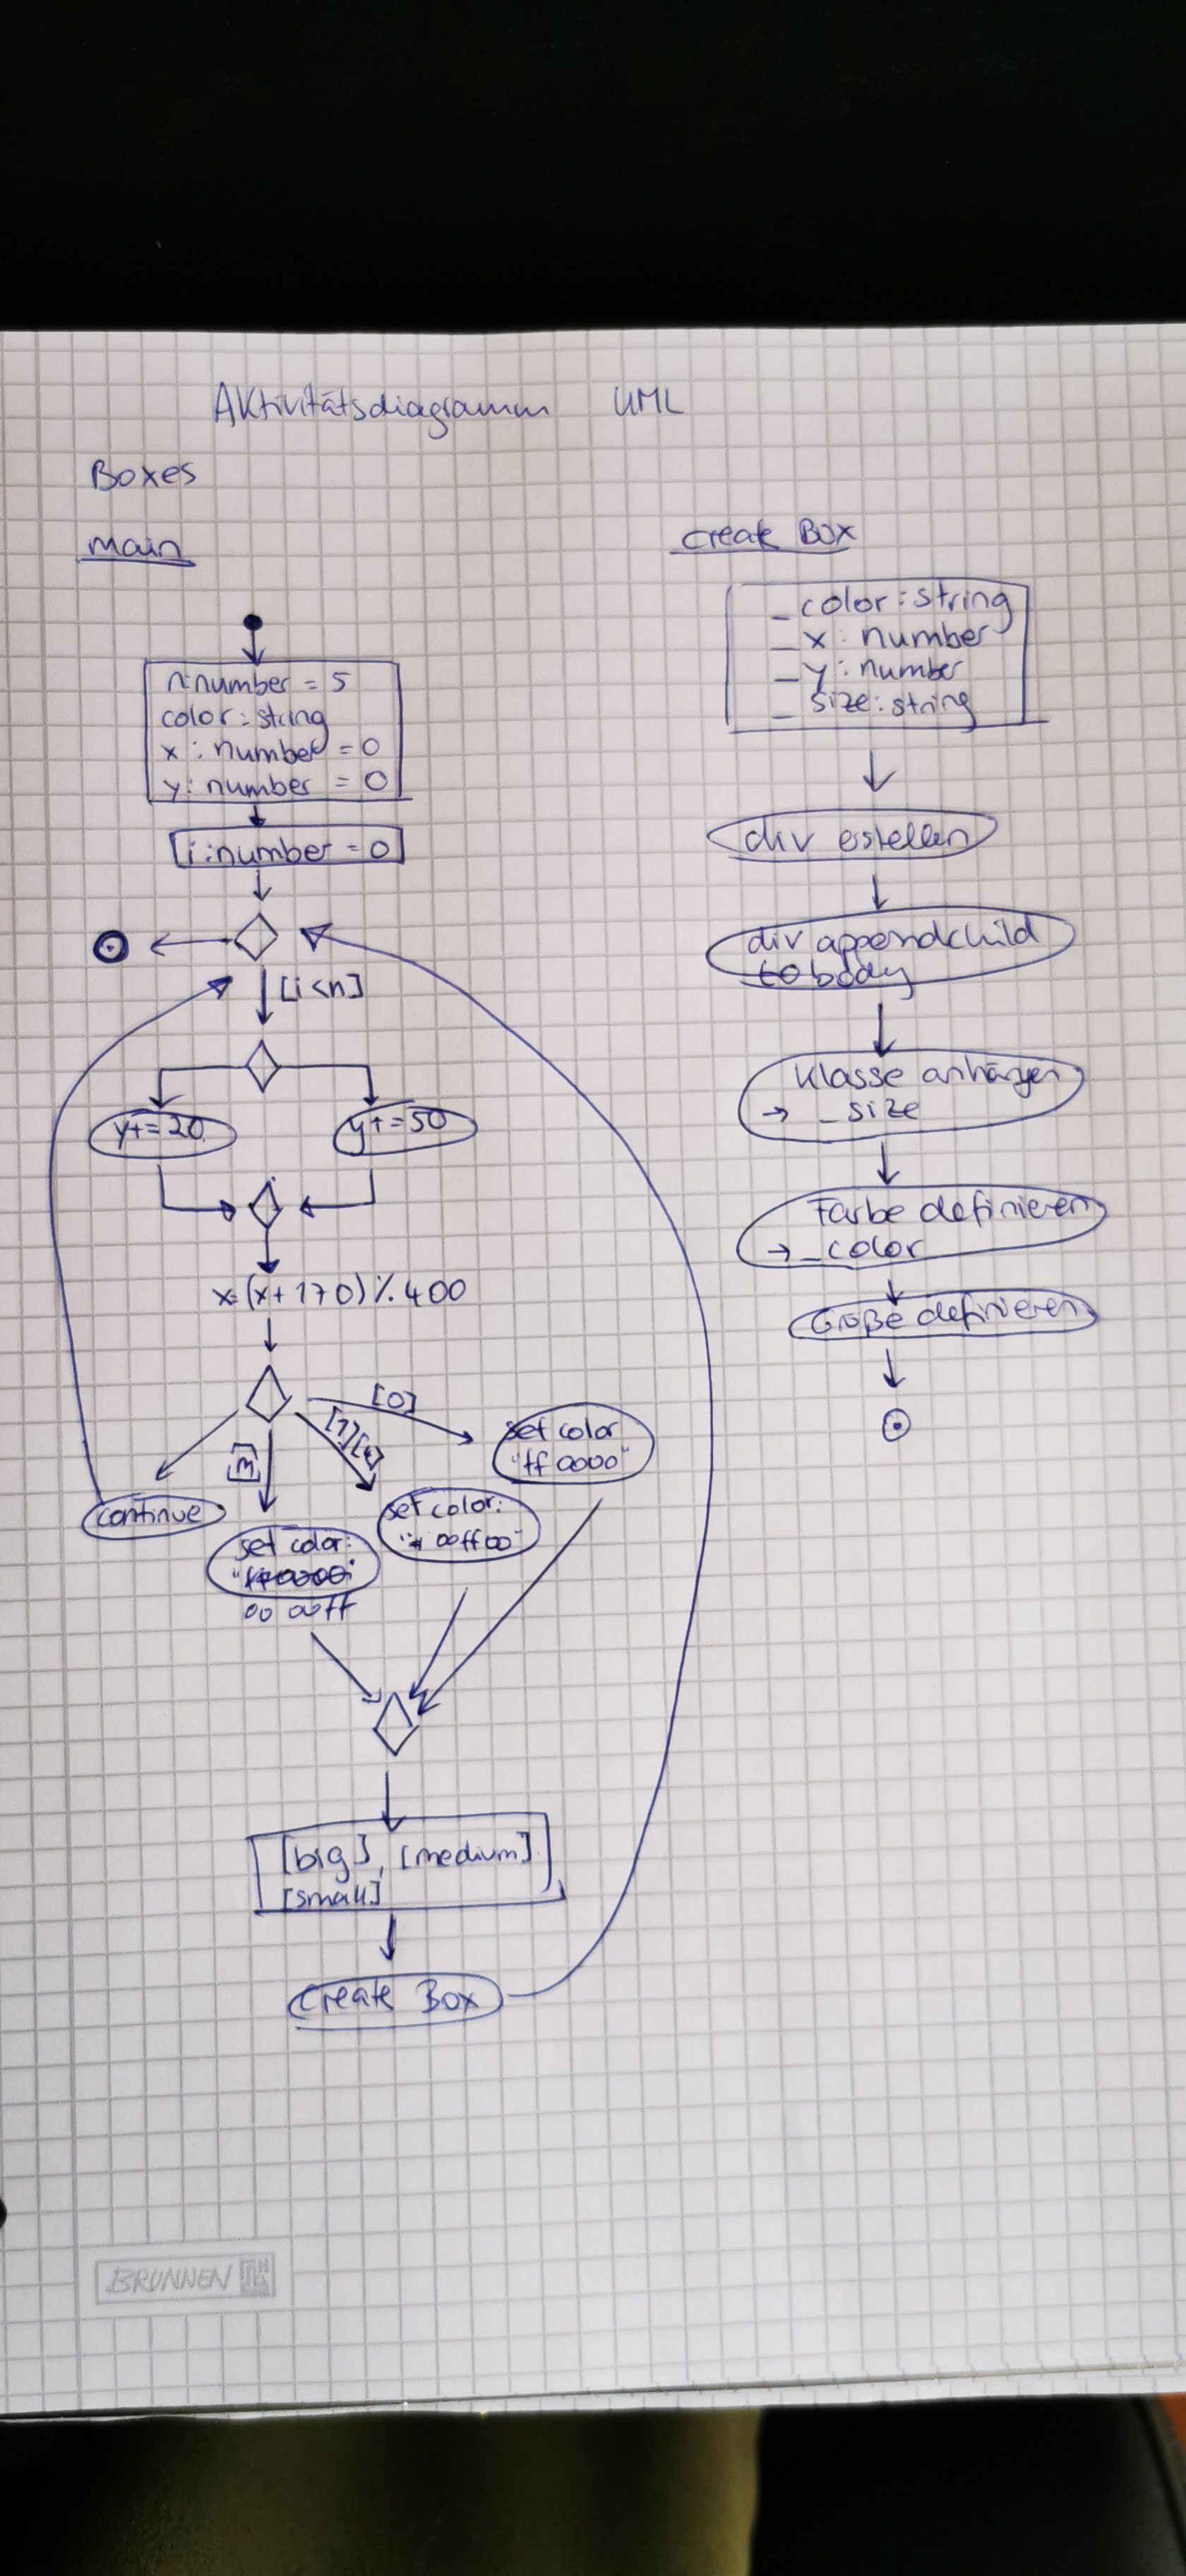 Aktivitätsdiagramm UML
Boxes
main
n:number = 5
color: string
x: number = 0
y: number = 0
[i:number = 0]
[i<n]
y+=20
y+=50
x=(x+170)%400
[0]
[1][4]
[3]
continue
set color
"ff0000"
set color:
00ff00"
set color:
00 00ff
[big], [medium]
[small]
create Box
create Box
_color: string
_x: number
_y: number
_size: string
div erstellen
div appendchild
to body
Klasse anhängen
→ _size
Farbe definieren
→ _color
Größe definieren
BRUNNEN